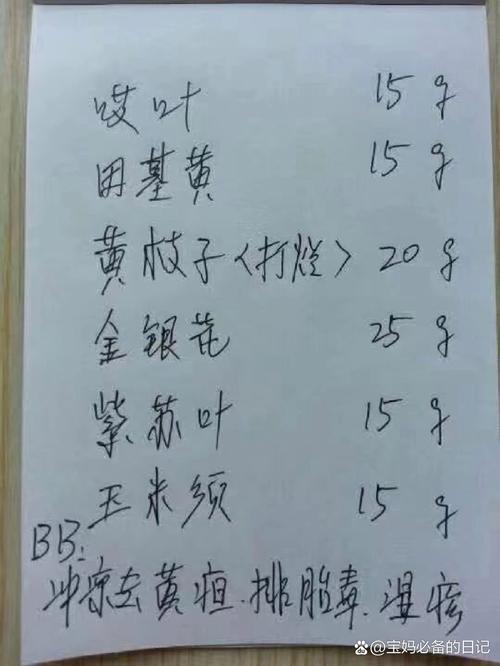 哎叶 15g
田基黄 15g
黄枝子（打烂）20g
金银花 25g
紫苏叶 15g
玉米须 15g
BB:
冲凉去黄疸.排胎毒.湿疹
@宝妈必备的日记